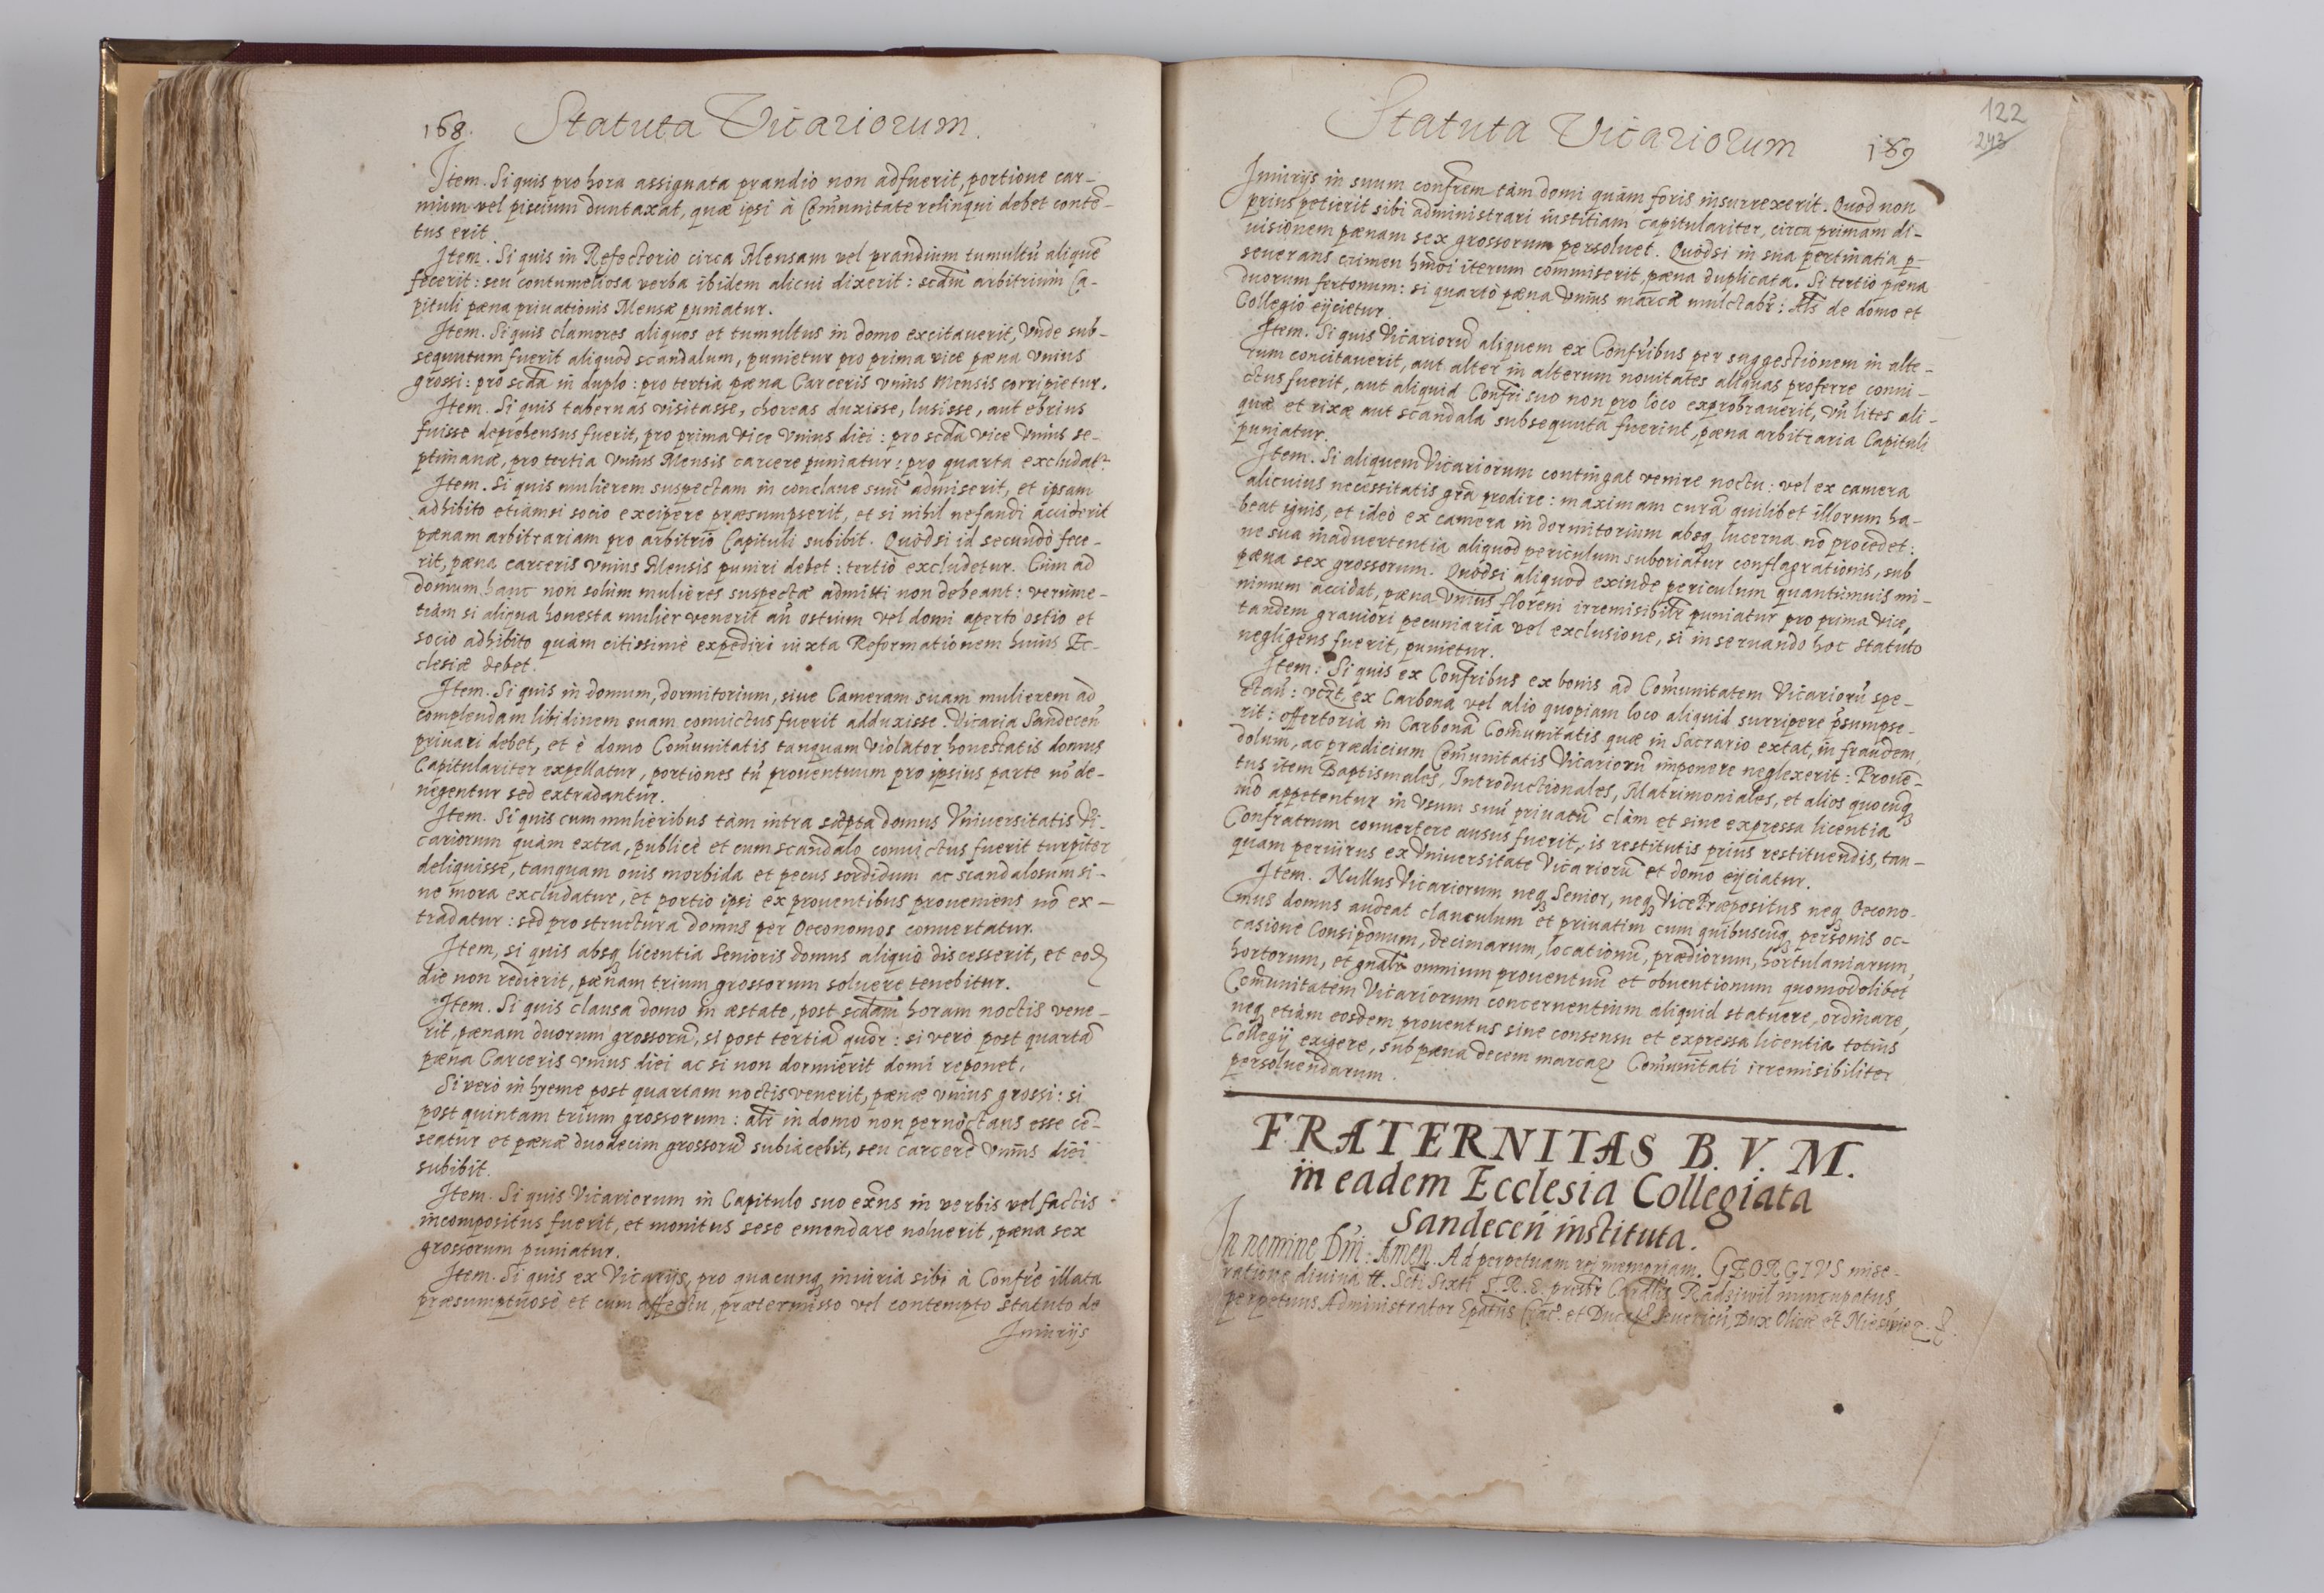 168. Statuta Vicariorum.
Item. Si quis pro hora assignata prandio non adfuerit, portione car-
nium vel piscium duntaxat, quæ ipsi à Com̃unitate relinqui debet conte-
tus erit.
Item. Si quis in Refectorio circa Mensam vel prandium tumultũ aliquẽ
fecerit: seu contumeliosa verba ibidem alicui dixerit: scdm̃ arbitrium Ca-
pituli pæna priuationis Mensæ puniatur.
Item. Si quis clamores aliquos et tumultus in domo excitauerit, Vnde sub-
sequutum fuerit aliquod scandalum, punietur pro prima vice pæna vnius
grossi: pro scda in duplo: pro tertia pæna Carceris vnius Mensis corripietur.
Item. Si quis tabernas visitasse, choreas duxisse, lusisse, aut ebrius
fuisse deprehensus fuerit, pro prima vice Vnius diei: pro scda vice Vnius se-
ptimanæ, pro tertia Vnius Mensis carcere puniatur: pro quarta excludat̃.
Item. Si quis mulierem suspectam in conclaue suũ admiserit, et ipsam
adhibito etiamsi socio excipere præsumpserit, et si nihil nefandi acciderit
pænam arbitrariam pro arbitrio Capituli subibit. Quòdsi id secundò fece-
rit, pæna carceris vnius Mensis puniri debet: tertiò excludetur. Cùm ad
domum hanc non solùm mulieres suspectæ admitti non debeant: verùme-
tiàm si aliqua honesta mulier venerit añ ostium vel domi aperto ostio et
socio adhibito quàm citissimè expediri iuxta Reformationem huius Ec-
clesiæ debet.
Item. Si quis in domum, dormitorium, siue Cameram suam mulierem ad
complendam libidinem suam conuictus fuerit adduxisse. Vicaria Sandeceñ
priuari debet, et è domo Com̃unitatis tanquam violator honestatis domus
Capitulariter expellatur, portiones tũ prouentuum pro ipsius parte nõ de-
negentur sed extradantur.
Item. Si quis cum mulieribus tàm intra sæpta domus Vniuersitatis Vi-
cariorum quàm extra, publicè et cum scandalo conuictus fuerit turpiter
deliquisse, tanquam ouis morbida et pecus sordidum ac scandalosum si-
ne mora excludatur, et portio ipsi ex prouentibus proueniens nõ ex-
tradatur: sed pro structura domus per Oeconomos conuertatur.
Item, si quis absq3 licentia Senioris domus aliquò discesserit, et eod
die non redierit, pænam trium grossorum soluere tenebitur.
Item. Si quis clausa domo in æstate, post scdam horam noctis vene-
rit, pænam duorum grossorũ, si post tertiã quõr: si verò post quartã
pæna Carceris vnius diei ac si non dormierit domi reponet.
Si verò in hyeme post quartam noctis venerit, pænæ vnius grossi: si
post quintam trium grossorum: alr̃ in domo non pernoctans esse cẽ-
seatur et pænæ duodecim grossorũ subiacebit, seu carcerẽ vnius diei
subibit.
Item. Si quis Vicariorum in Capitulo suo exñs in verbis vel factis
incompositus fuerit, et monitus sese emendare noluerit, pæna sex
grossorum puniatur.
Item. Si quis ex Vicarijs, pro quacunq3 iniuria sibi à Confrẽ illata
præsumptuosè et cum affectu, prætermisso vel contempto statuto de
Iniurijs
Statuta Vicariorum 169
122
243
Iniurijs in suum confrẽm tàm domi quàm foris insurrexerit. Quod non
prius petierit sibi administrari iustitiam capitulariter, circa primam di-
uisionem pænam sex grossorum persoluet. Quòdsi in sua pertinatia p-
seuerans crimen hm̃oi iterum commiserit, pæna duplicata. Si tertiò pæna
duorum fertonum: si quartò pæna Vnius marcæ mulctabr̃: Als de domo et
Collegio eijcietur.
Item. Si quis Vicariorũ aliquem ex Confrĩbus per suggestionem in alte-
rum concitauerit, aut alter in alterum nouitates aliquas proferre conui-
ctus fuerit, aut aliquid Confrĩ suo non pro loco exprobrauerit, vñ lites ali-
quæ et rixæ aut scandala subsequuta fuerint, pæna arbitraria Capituli
puniatur.
Item. Si aliquem Vicariorum contingat venire noctu: vel ex camera
alicuius necessitatis grã prodire: maximam curã quilibet illorum ha-
beat ignis, et ideò ex camera in dormitorium absq3 lucerna nõ procedet:
ne sua inaduertentia aliquod periculum suboriatur conflagrationis, sub
pæna sex grossorum. Quòdsi aliquod exinde periculum quantumuis mi-
nimum accidat, pæna Vnius floreni irremisibilr̃ puniatur pro prima vice,
tandem grauiori pecuniaria vel exclusione, si in seruando hoc statuto
negligens fuerit, punietur.
Item: Si quis ex Confrĩbus ex bonis ad Com̃unitatem Vicariorũ spe-
ctañ: vczt. ex Carbona vel alio quopiam loco aliquid surripere p̃sumpse-
rit: offertoria in Carbonã Com̃unitatis quæ in Sacrario extat, in fraudem,
dolum, ac prædicium Com̃unitatis Vicariorũ imponere neglexerit: Prouẽ-
tus item Baptismales, Introductionales, Matrimoniales, et alios quocunq3
mõ appetentur in Vsum suũ priuatũ clàm et sine expressa licentia
Confratrum conuertere ausus fuerit, is restitutis prius restituendis, tan-
quam periurus ex Vniuersitate Vicariorũ et domo eijciatur.
Item. Nullus Vicariorum, neq3 Senior, neq3 VicePræpositus neq3 Oecono-
mus domus audeat clanculum et priuatim cum quibuscunq3 personis oc-
casione Consiponum, decimarum, locationũ, prædiorum, hortulaniarum,
hortorum, et gnalr̃ omnium prouentuũ et obuentionum quomodolibet
Com̃unitatem Vicariorum concernentium aliquid statuere, ordinare,
neq3 etiàm eosdem prouentus sine consensu et expressa licentia totius
Collegij exigere, sub pæna decem marcaꝝ Com̃unitati irremisibiliter
persoluendarum.
FRATERNITAS B. V. M.
in eadem Ecclesia Collegiata
Sandeceñ instituta.
In nomine Dñi. Amen. Ad perpetuam rej memoriam. GEORGIVS mise-
ratione diuina tt. Scti Sixti S. R. E. presbr̃ Cardlis Radziwil nuncupatus
perpetuus Administrator Epatus Crac̃. et Ducatꝰ Seuerieñ, Dux Olicæ et Nieswie